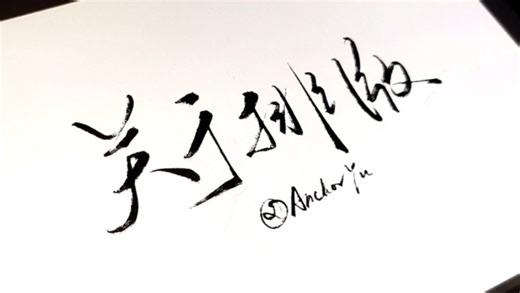 关于排版
@Anchor Yu